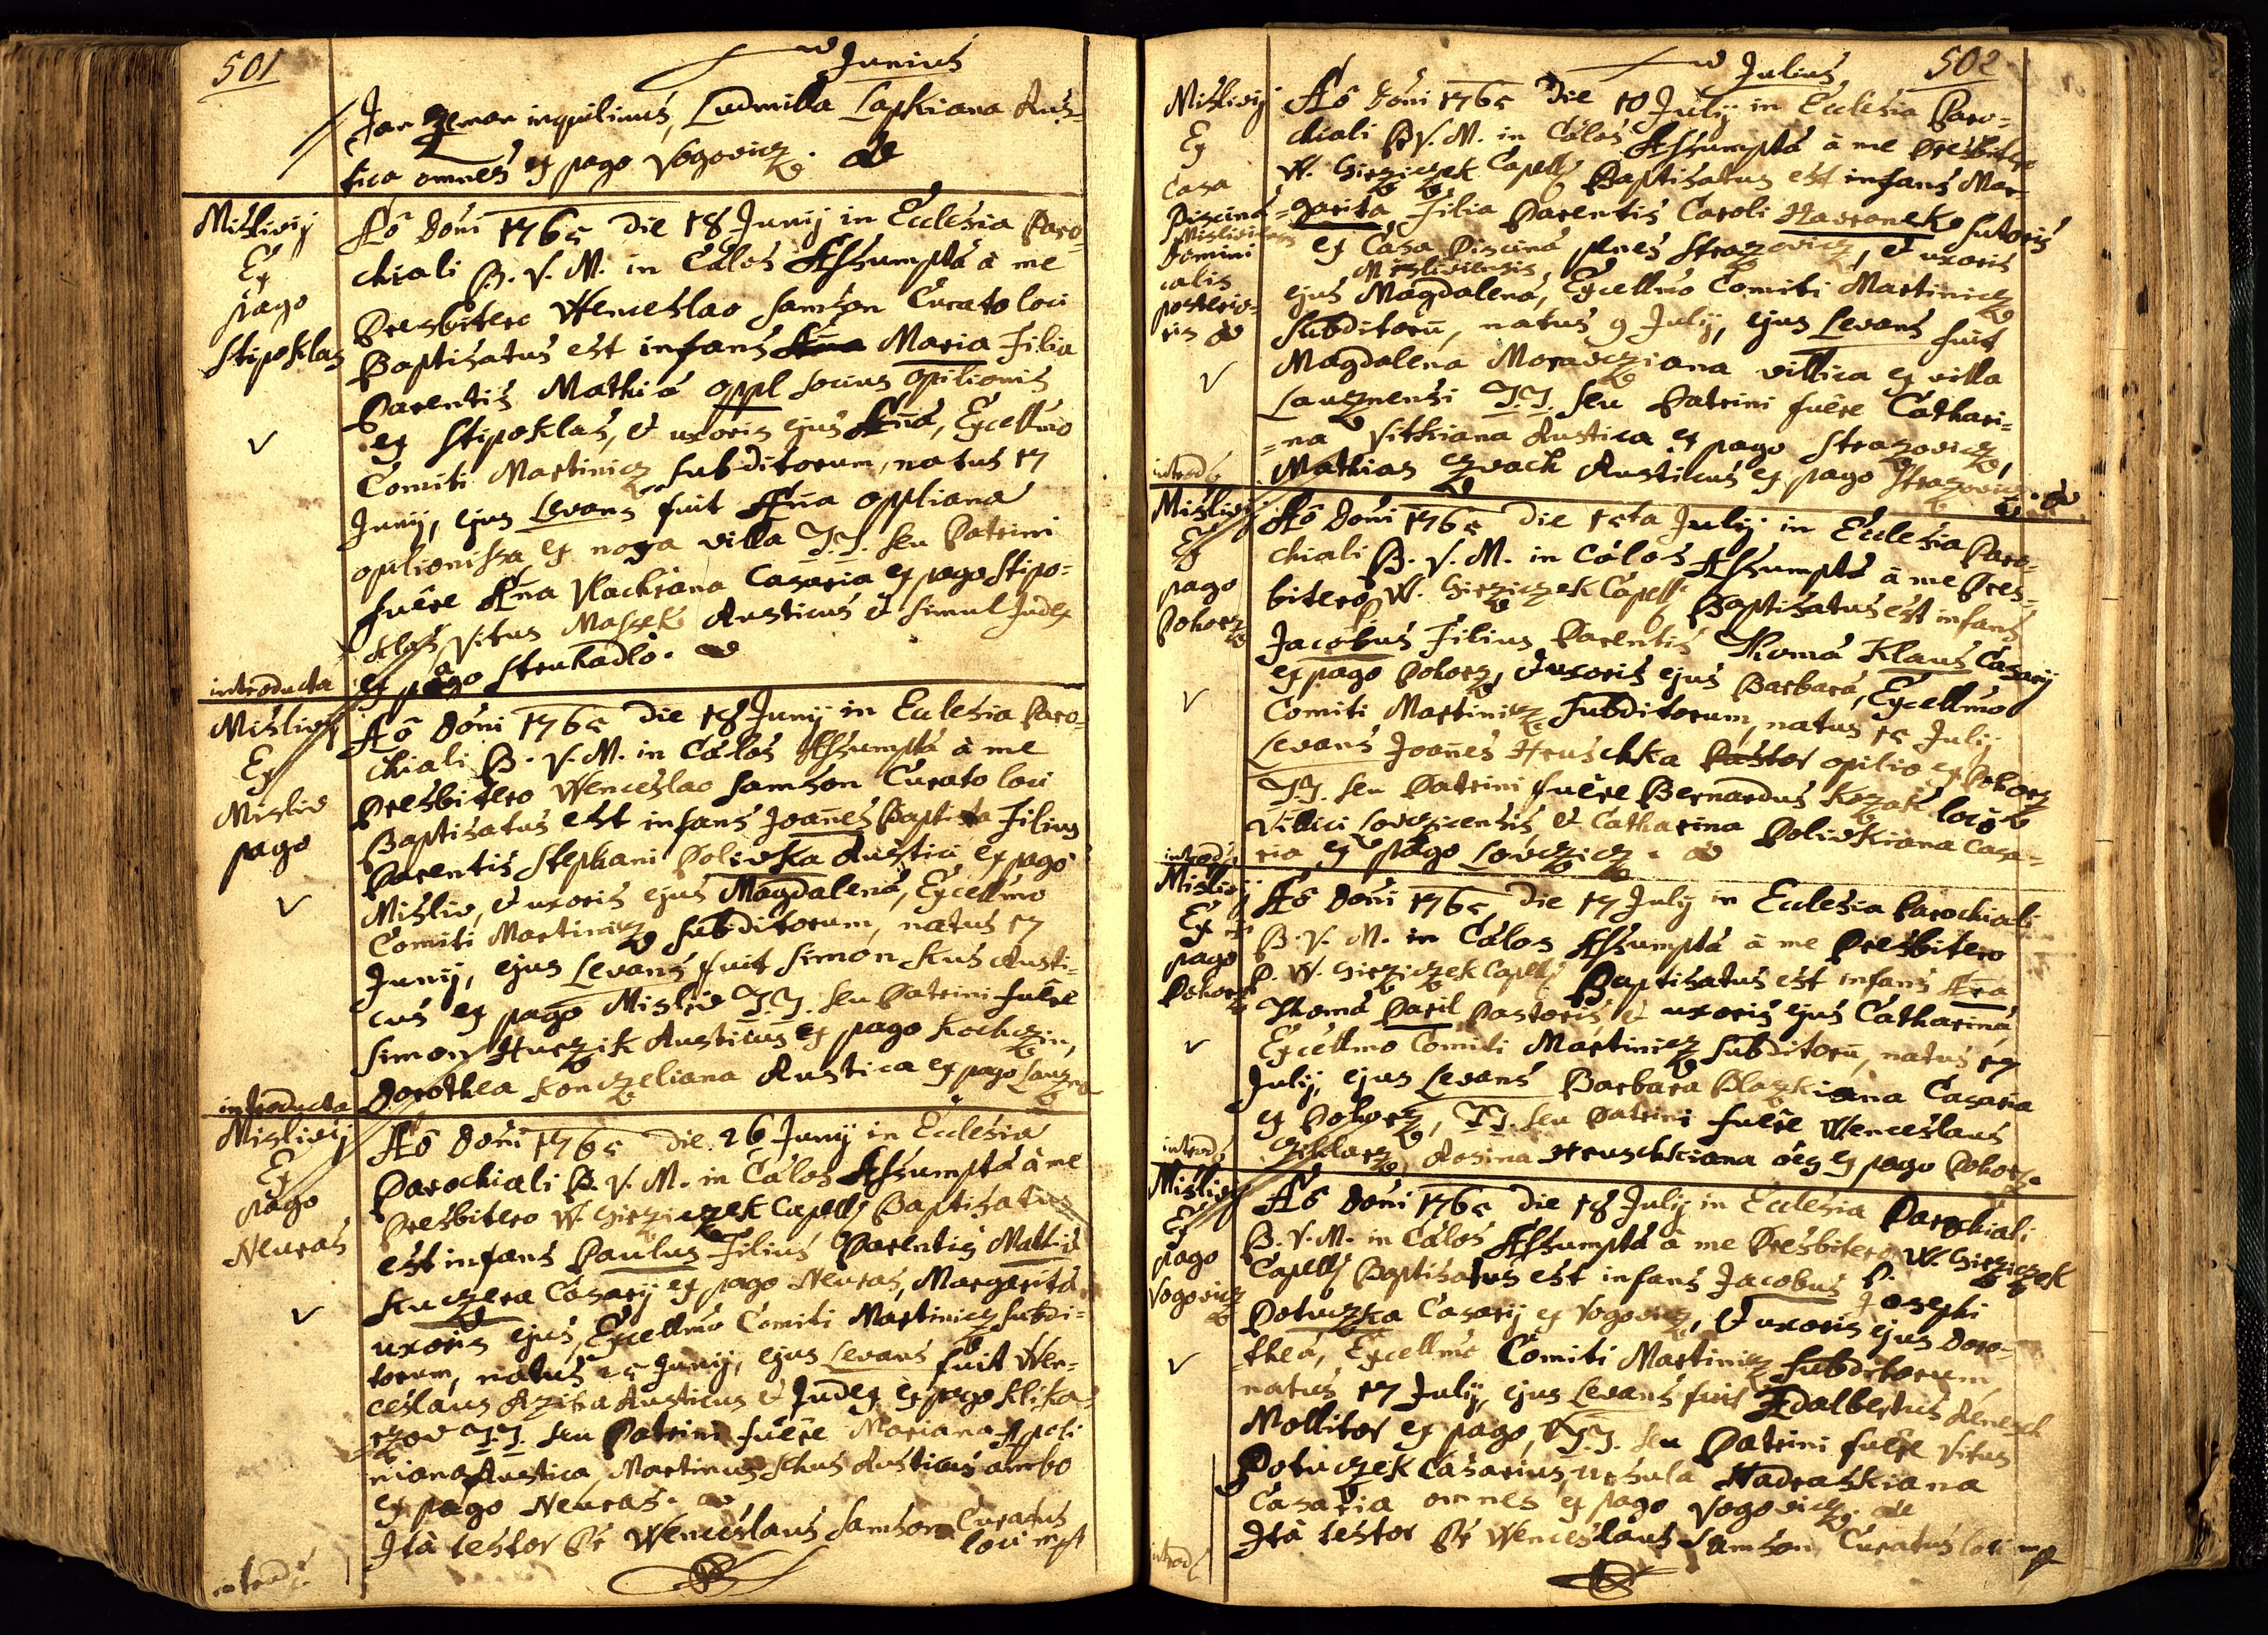 501
Junius
Jan Zeman inquilinus, Ludmilla Lapkiana Rus=
tica omnes ex pago Vogovicz.
Mislivij
Ex
pago
Stipoklas
Aõ Doni 1765 die 18 Junij in Ecclesia Paro=
chiali B. V. M. in Cælos Assumptæ à me
Presbitero Wenceslao Samson Curato loci
Baptisatus est infans Aña Maria Filia
Parentis Mathiæ Oppl socius opilionis
ex Stipoklas, & uxoris ejus Añæ, Excellmo
Comiti Martinicz subditorum, natus 17
Junij, ejus Levans fuit Aña Oppliana
opilionissa ex nova villa T.T. seu Patrini
fuêre Aña Vlachiana Casaria ex pago Stipo=
klas, Vitus Massek Rusticus & simul Judex
ex pago Struhadlo.
introducta
Mislivij
Ex
Misliv
pago
Aõ Doni 1765 die 18 Junij in Eclesia Paro=
chiali B. V. M. in Cælos Assumptæ à me
Presbitero Wenceslao Samson Curato loci
Baptisatus est infans Joañes Baptista Filius
Parentis Stephani Polivka Rustici ex pago
Misliv, & uxoris ejus Magdalenæ, Excellmo
Comiti Martinicz subditorum, natus 17
Junij, ejus Levans fuit Simon Kus Rusti=
cus ex pago Misliv T.T. seu Patrini fuêre
Simon Hurzik Rusticus ex pago Kochczin,
Dorothea Konczeliana Rustica ex pago Lauzna
introducta
Mislivij
Ex
pago
Neuras
Aõ Doni 1765 die 26 Junij in Ecclesia
Parochiali B. V. M. in Cælos Assumptæ à me
Presbitero W. Girziczek Capell Baptisatus
est infans Paulus Filius Parentis Mathiæ
Kuczera Casarij ex pago Neuras, Margaritæ
uxoris ejus, Excellmo Comiti Martinicz subdi=
torum, natus 25 Junij, ejus Levans fuit Wen=
ceslaus Rziha Rusticus & Judex ex pago Klika=
rzow T.T. seu Patrini fuêre Mariana Apoli
niana Rustica, Martinus Schus Rusticus ambo
ex pago Neuras.
Ità testor Pr Wenceslaus Samson Curatus
loci mpt
introd
502
Julius
Mislivij
Ex
Casa
Piscinæ
Misliviensis
Domini
calis
posterio=
ris
Aõ Doni 1765 die 10 Julij in Ecclesia Paro=
chiali B. V. M. in Cælos Assumptæ à me Presbitero
W. Girziczek Capell Baptisatus est infans Mar=
=garita Filia Parentis Caroli Havranek sutoris
ex Casa Piscinæ penes Strazovicz, & uxoris
Misliviensis,
ejus Magdalenæ, Excellmo Comiti Martinicz
subditorũ, natus 9 Julij, ejus Levans fuit
Magdalena Moravcziana villica ex villa
Lauznensi T.T. seu Patrini fuêre Cathari=
=na Vitkiana Rustica ex pago Strazovicz,
Mathias Czvach Rusticus ex pago Strazovicz.
introd
Mislivij
Ex
pago
Pohorz
Aõ Doni 1765 die 15ta Julij in Ecclesia Paro=
chiali B. V. M. in Cælos Assumptæ à me Pres=
bitero P. W. Girziczek Capell Baptisatus est infans
Jacobus Filius Parentis Thomæ Klaus Casarij
ex pago Pohorz, & uxoris ejus Barbaræ, Excellmo
Comiti Martinicz subditorum, natus 15 Julij
Levans Joañes Hruschka Pastor opilio ex Pohorz
T.T. seu Patrini fuêre Bernardus Kozak loco
Villici Lovczicensis, & Catharina Polivkiana Casa=
ria ex pago Lovczicz.
introd
Mislivij
Ex
pago
Pohorz
Aõ Doni 1765 die 17 Julij in Ecclesia Parochiali
B. V. M. in Cælos Assumptæ à me Presbitero
P. W. Girziczek Capell Baptisatus est infans Aña
Thomæ Paril Pastoris, & uxoris ejus Catharinæ,
Excellmo Comiti Martinicz subditorũ, natus 17
Julij, ejus Levans Barbara Blazkiana Casaria
ex Pohorz, T.T. seu Patrini fuêre Wenceslaus
Sklarz, Rosina Hruschkiana oes ex pago Pohorz.
introd
Mislivij
Ex
pago
Vogovicz
Aõ Doni 1765 die 18 Julij in Ecclesia Parochiali
B. V. M. in Cælos Assumptæ à me Presbitero P. W. Girziczek
Capell Baptisatus est infans Jacobus Josephi
Potuczka Casarij ex Vogovicz, & uxoris ejus Doro=
=theæ, Excellmo Comiti Martinicz subditorum
natus 17 Julij, ejus Levans fuit Adalbertus
Mollitor ex pago, T.T. seu Patrini fuêre Vitus
Potuczek Casarius, Ursula Hadraskiana
Casaria omnes ex pago Vogovicz.
Ità testor Pr Wenceslaus Samson Curatus loci mp
introd